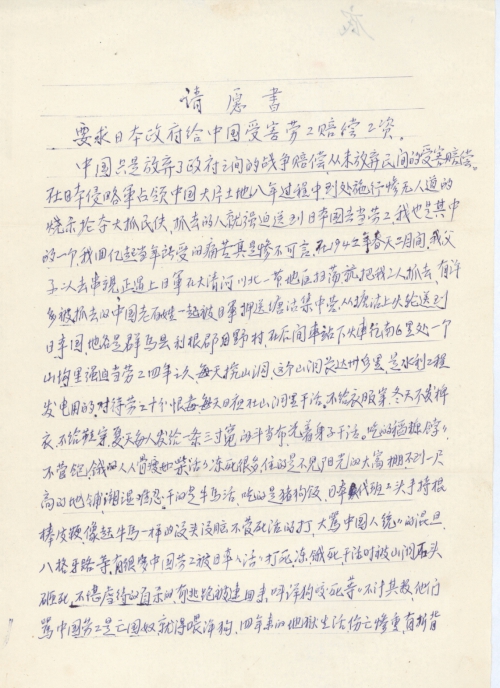 请愿书
要求日本政府给中国受害劳工赔偿工资。
中国只是放弃了政府之间的战争赔偿，从未放弃民间的受害赔偿。
在日本侵略军占领中国大片土地八年过程中，到处施行惨无人道的
烧杀抢夺大抓民伕，抓去的人就强迫送到日本国去当劳工，我也是其中
的一个，我回忆起当年所受的痛苦真是惨不可言。在1942年春天二月间，我父
子二人去串亲，正遇上日军在大清河以北一带地区扫荡，就把我二人抓去，有许
多被抓去的中国老百姓一起被日军押送塘沽集中营，从塘沽上火轮送到
日本国，地名是群马县利根郡月野村，在后间车站下火车，乾南6里处一个
山坳里强迫当劳工四年之久，每天挖山洞，这个山洞长达卅多里，是水利工程
发电用的。对待劳工十个恨毒，每天日夜在山洞里干活，不给衣服穿，冬天不发棉
衣，不给鞋穿，夏天每人发给一条三寸宽的斗当布，光着身子干活。吃的稻糠
不管饱，饿的人人骨瘦如柴，活活冻死很多，住的是不见阳光的大窝棚，不到一尺
高的地铺，潮湿难忍，干的是牛马活，吃的是猪狗饭，日本代班工头手持棍
棒皮鞭像赶牛马一样的没头没脸不管死活的打，大骂中国人统统的混旦，
八格牙路等，有很多中国劳工被日本人活活打死，冻饿死，干活时被山洞石头
砸死，不堪虐待的自杀的，有些跑被逮回来，叫洋狗咬死等，不计其数，他们
骂中国劳工是亡国奴，就得喂洋狗，四年来的地狱生活伤亡惨重，有折背